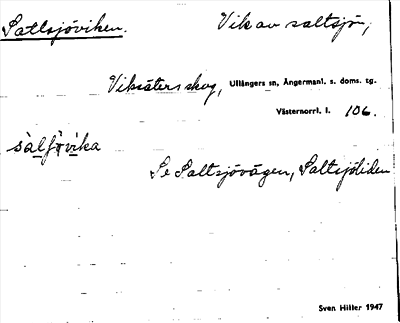 Saltsjöviken. Vik av saltsjö,
Viksäters skog, Ullångers sn, Ångermanl. s. doms. tg.
Västernorrl. l. 106.
Se Saltsjövägen, Saltsjöliden
Sven Hiller 1947